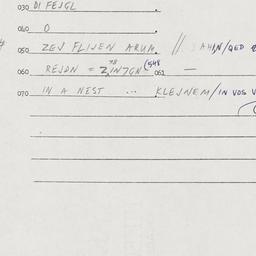 030 DI FEJGL
040 O
050 ZEJ FLIJEN ARUM // AHIN/QED
060 REJDN = 061 —
070 IN A NEST ... KLEJNEM/IN VOS